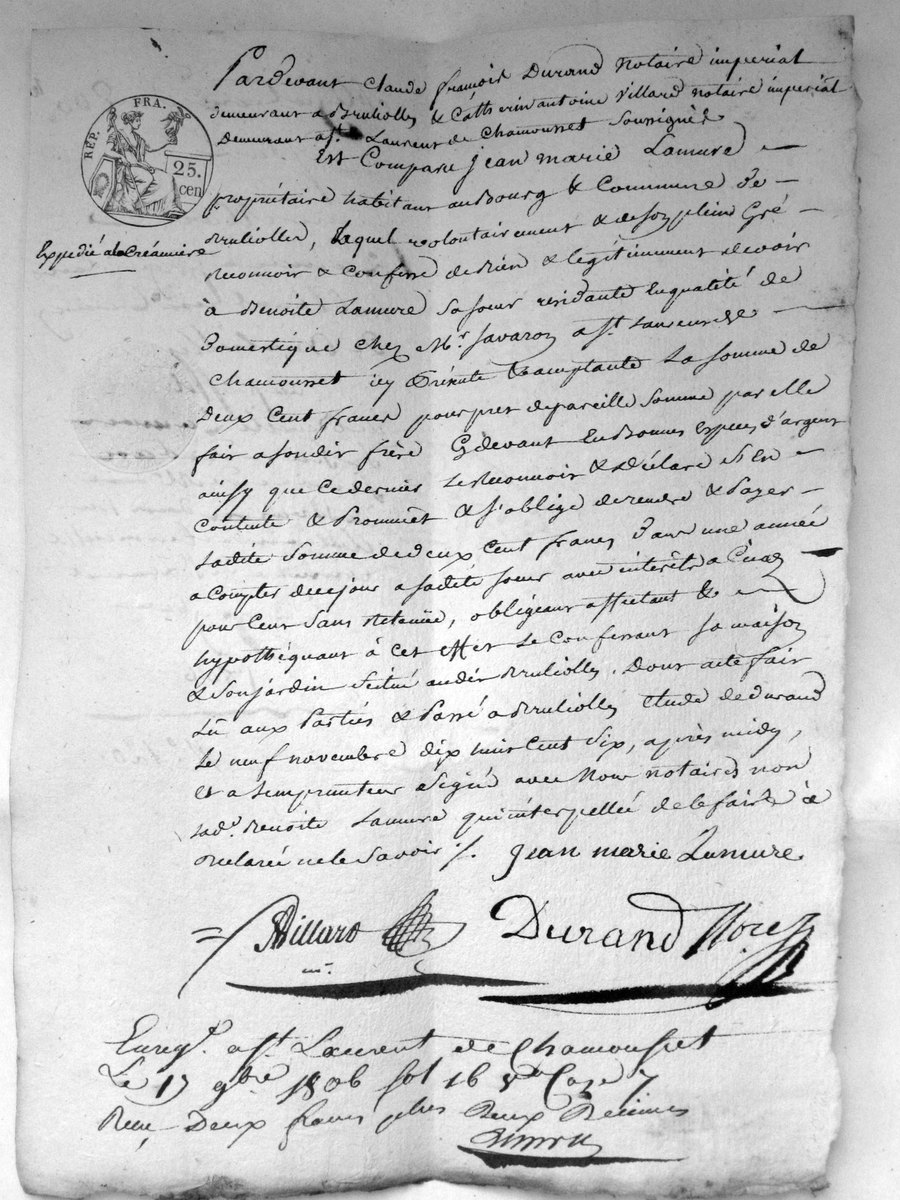 RÉP. FRA.
25.
cen
Expédié à la Créancière
Pardevant Claude françois Durand Notaire imperial
demeurant a Brullolles & Catherin antoine Villard notaire impérial
Demeurant a St. Laurent de Chamousset Soussignés
Est Comparu jean marie Lamure
propriétaire habitant au Bourg & Commune De
Brullolles, Lequel volontairement & de son plein Gré
Reconnoit & Confesse de Bien & légitimement devoir
à Benoite Lamure Sa sœur résidante En qualité de
Domestique Chez Mr. Javaron a St. Laurent de
Chamousset icy Présente & acceptante La somme de
Deux Cent francs pour pret de pareille Somme par elle
fait a son dit frère Cy devant En Bonnes Espèces d'argent
ainsy que Ce dernier Le Reconnoit & Déclare S'en
Contente & Promet & s'oblige de rendre & Payer
Ladite Somme de deux Cent francs Dans une année
a Compter de ce jour a sadite sœur avec intérêts a Cinq
pour Cent Sans Retenüe, obligeant affectant &
hypothéquant à Cet effet Le Confessant sa maison
& son jardin Situé audit Brullolles. Dont acte fait
Lû aux Parties & Passé a Brullolles Etude de durand
Le neuf novembre dix huit Cent Six, après midy,
Et a L'emprunteur Signé avec Nous notaires non
Lade. Benoite Lamure qui interpellée de le faire à
Déclarée ne le Savoir ./. jean marie Lamure
Villard Durand Nore
Enregé. a St. Laurent de Chamousset
Le 17 9bre 1806 fol 16 Case 7
Recu Deux francs plus Deux Décimes